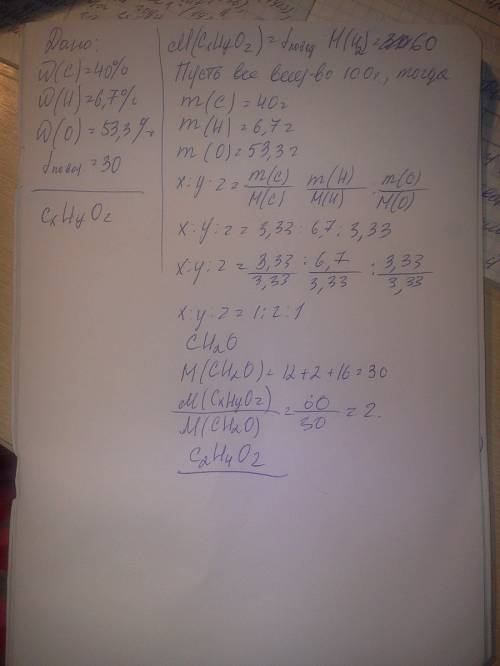 Дано:
ω(C)=40%
ω(H)=6,7%
ω(O)=53,3%
=30
CxHyOz
M(CxHyOz)= M(H2)= 60
Пусть все вещ-во 100г, тогда
m(C)=40г
m(H)=6,7г
m(O)=53,3г
x:y:z = m(C)/M(C) m(H)/M(H) : m(O)/M(O)
x:y:z = 3,33 : 6,7 : 3,33
x:y:z = 3,33/3,33 : 6,7/3,33 : 3,33/3,33
x:y:z = 1:2:1
CH2O
M(CH2O)=12+2+16=30
M(CxHyOz)/M(CH2O) = 60/30 = 2.
C2H4O2